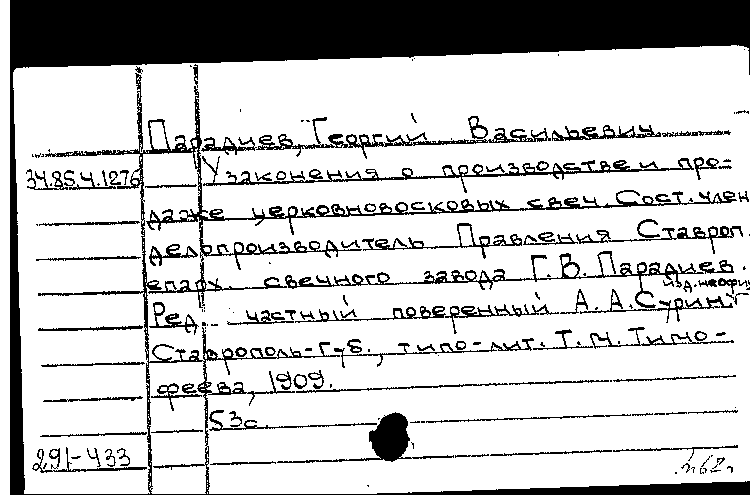 Парадиев, Георгий Васильевич
34.85.4.1276
Узаконения о производстве и про-
даже церковновосковых свеч. Сост. член
делопроизводитель Правления Ставроп.
епарх. свечного завода Г. В. Парадиев.
изд. неофиц.
Ред. частный поверенный А. А. Сурин.
Ставрополь-губ., типо-лит. Т. М. Тимо-
феева, 1909.
53с.
291-433